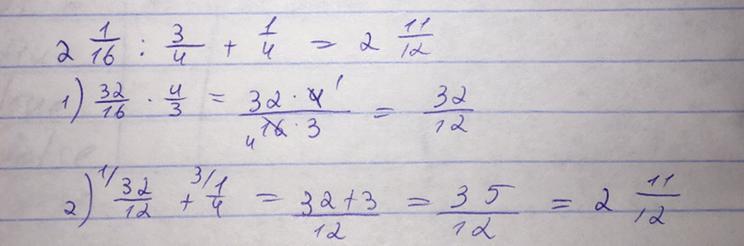 2 1/16 : 3/4 + 1/4 = 2 11/12
1) 32/16 · 4/3 = 32 · 4 1 / 4 16 · 3 = 32/12
2) 1/ 32/12 + 3/ 1/4 = 32+3/12 = 35/12 = 2 11/12